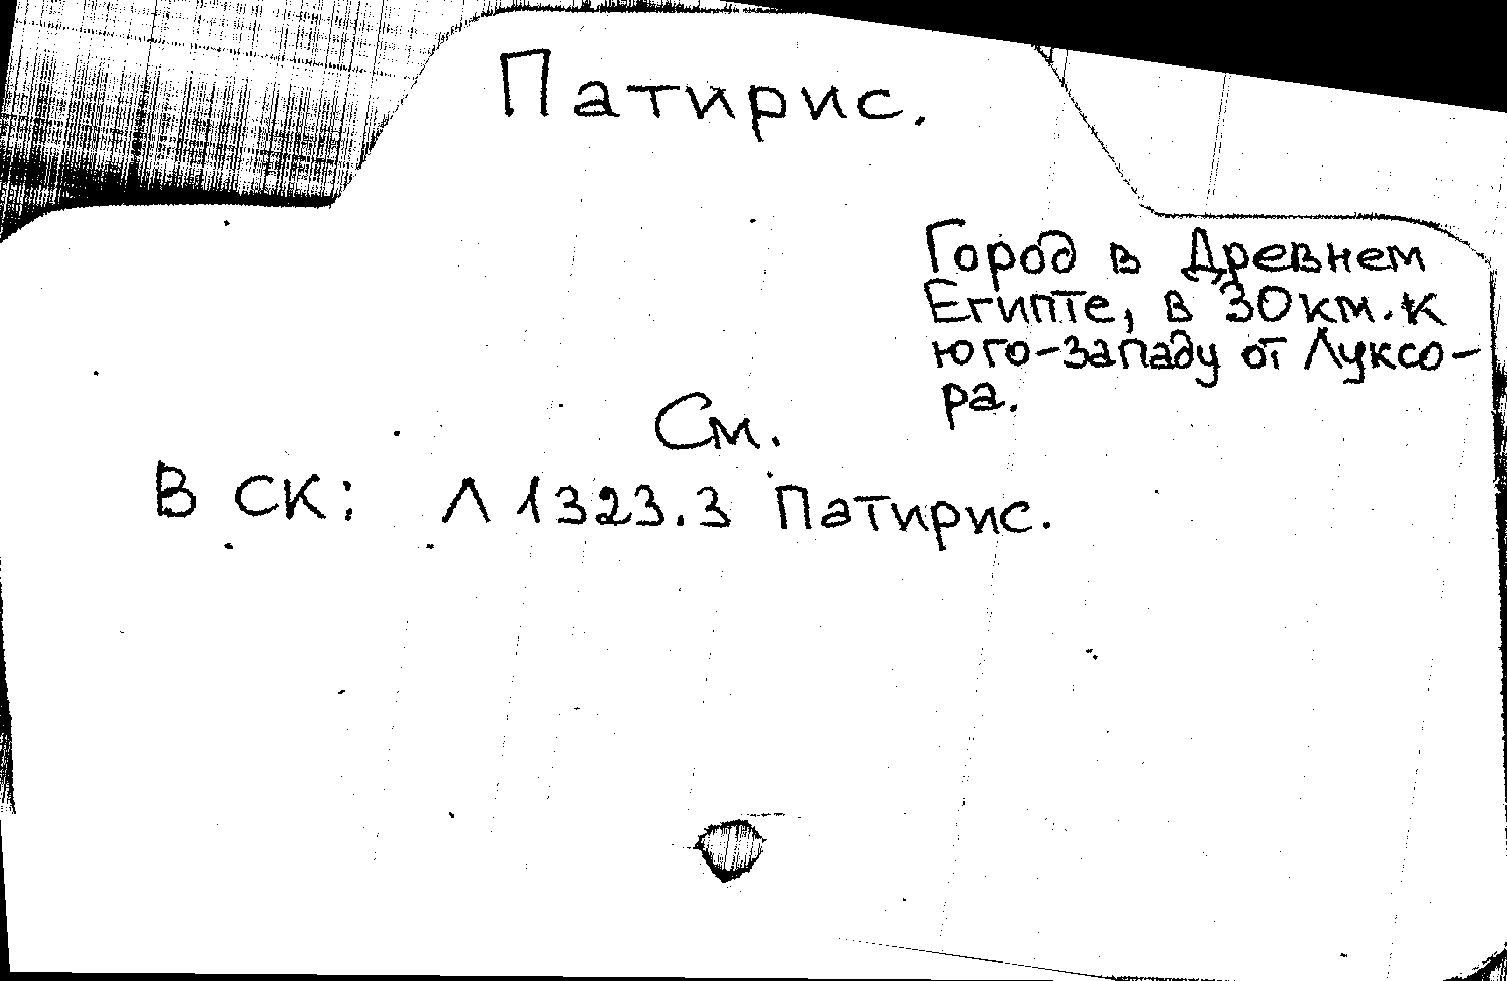 Патирис.
Город в Древнем
Египте, в 30 км. к
юго-западу от Луксо-
ра.
См.
В СК: Л 1323.3 Патирис.